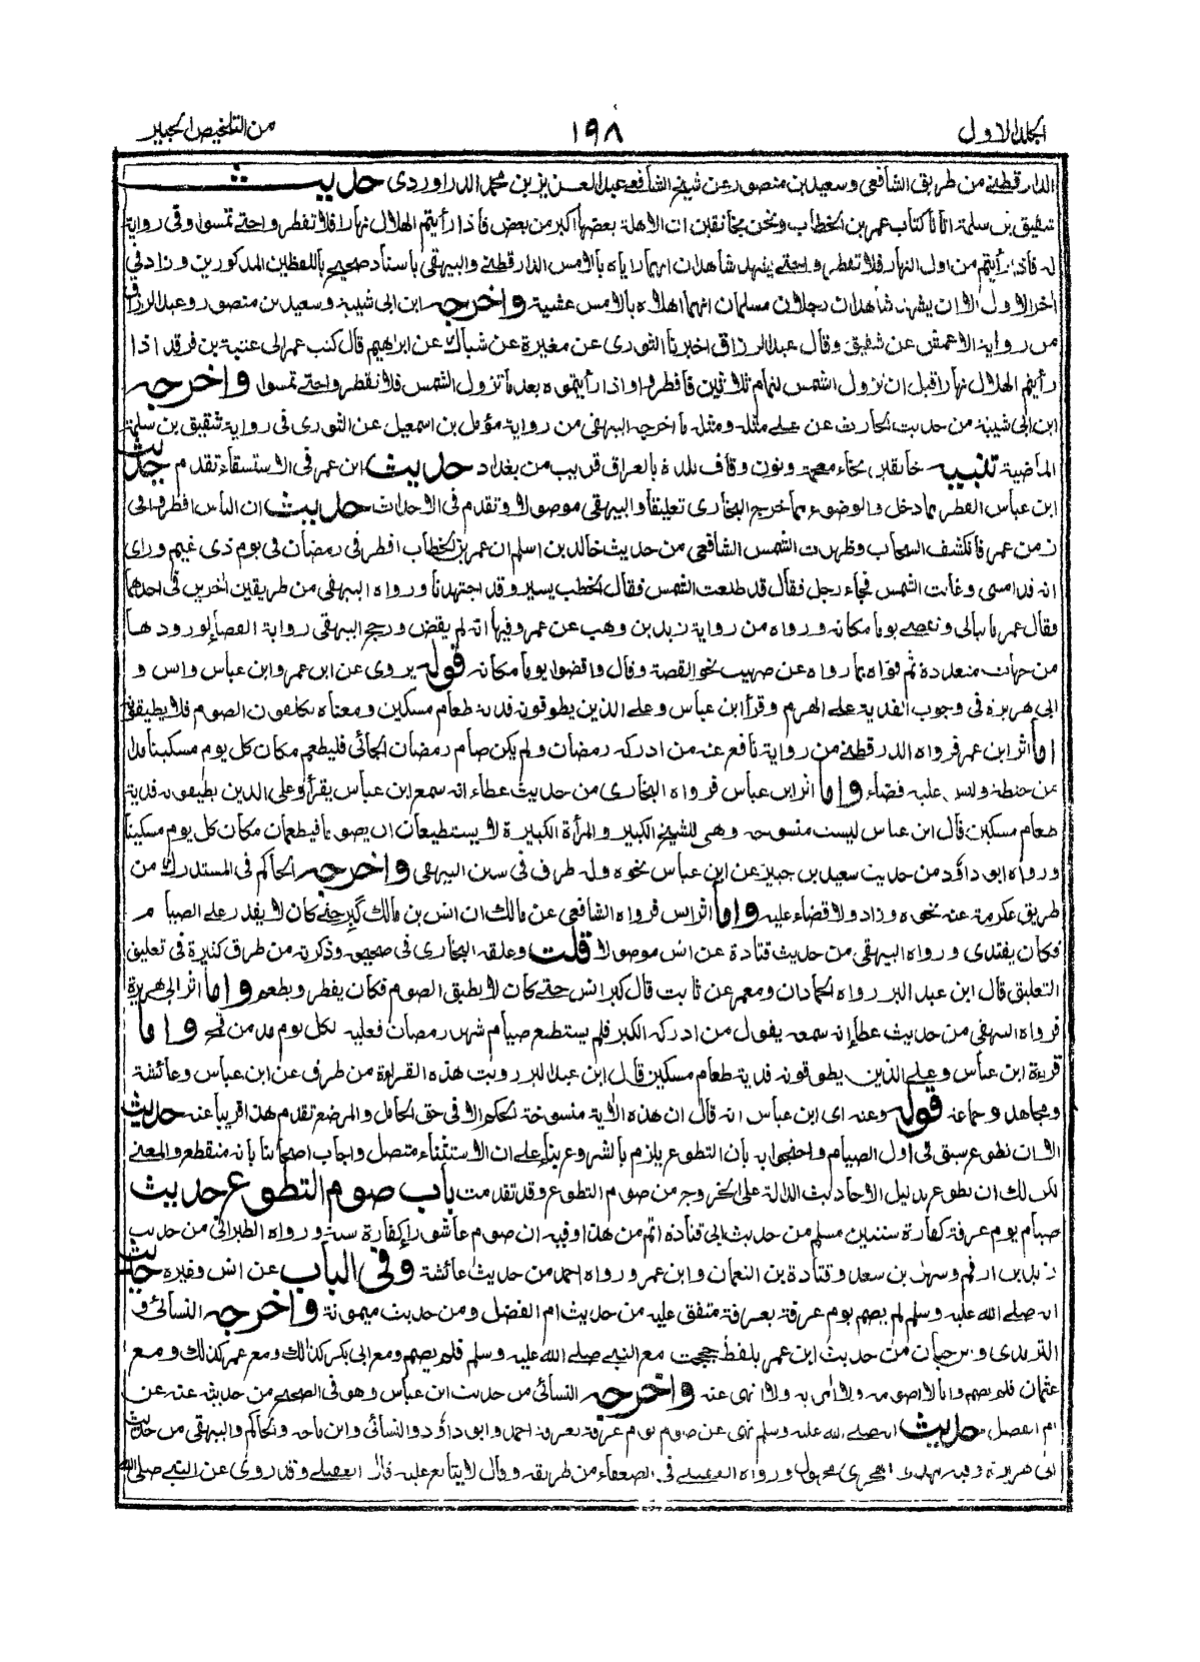 الجلد الاول
١٩٨
من التلخيص الحبير
الدارقطني من طريق الشافعي وسعيد بن منصور عن شيخ الشافعي عبد العزيز بن محمد الدراوردي حديث
شقيق بن سلمة اتانا كتاب عمر بن الخطاب ونحن بخانقين ان الاهلة بعضها اكبر من بعض فاذا رأيتم الهلال نهارا فلا تفطروا حتى تمسوا وفي رواية
له فاذا رأيتم من اول النهار فلا تفطروا حتى يشهد شاهدان انهما راياه بالامس الدارقطني والبيهقي باسناد صحيح باللفظين المذكورين وزاد في
اخر الاول الا ان يشهد شاهدان رجلان مسلمان انهما اهلاه بالامس عشية واخرجه ابن ابي شيبة وسعيد بن منصور وعبد الرزاق
من رواية الاعمش عن شقيق وقال عبد الرزاق اخبرنا الثوري عن مغيرة عن شباك عن ابراهيم قال كتب عمر الى عتبة بن فرقد اذا
رأيتم الهلال نهارا قبل ان تزول الشمس لتمام ثلاثين فافطروا واذا رأيتموه بعد ما تزول الشمس فلا تفطروا حتى تمسوا واخرجه
ابن ابي شيبة من حديث الحارث عن علي مثله ومثله ما اخرجه البيهقي من رواية مؤمل بن اسمعيل عن الثوري في رواية شقيق بن سلمة
الماضية تنبيه خانقين بخاء معجمة ونون وقاف بلدة بالعراق قريب من بغداد حديث ابن عمر في الاستسقاء تقدم حديث
ابن عباس الفطر مما دخل والوضوء مما خرج البخاري تعليقا والبيهقي موصولا وتقدم في الاحداث حديث ان الناس افطروا في
زمن عمر فانكشف السحاب وظهرت الشمس الشافعي من حديث خالد بن اسلم ان عمر بن الخطاب افطر في رمضان في يوم ذي غيم وراى
انه قد امسى وغابت الشمس فجاء رجل فقال قد طلعت الشمس فقال الخطب يسير وقد اجتهدنا ورواه البيهقي من طريقين اخرين في احدهما
فقال عمر ما نبالي ونقضي يوما مكانه ورواه من رواية زيد بن وهب عن عمر وفيها انه لم يقض ورجح البيهقي رواية القضاء لورودها
من جهات متعددة ثم قواه بما رواه عن صهيب نحو القصة وقال واقضوا يوما مكانه قوله يروى عن ابن عمر وابن عباس وانس و
ابي هريرة في وجوب الفدية على الهرم وقرأ ابن عباس وعلى الذين يطوقونه فدية طعام مسكين ومعناه يكلفون الصوم فلا يطيقونه
اما اثر ابن عمر فرواه الدارقطني من رواية نافع عنه من ادركه رمضان ولم يكن صام رمضان الجائي فليطعم مكان كل يوم مسكينا مدا
من حنطة وليس عليه قضاء واما اثر ابن عباس فرواه البخاري من حديث عطاء انه سمع ابن عباس يقرأ وعلى الذين يطيقونه فدية
طعام مسكين قال ابن عباس ليست منسوخة وهي للشيخ الكبير والمرأة الكبيرة لا يستطيعان ان يصوما فيطعمان مكان كل يوم مسكينا
ورواه ابو داؤد من حديث سعيد بن جبير عن ابن عباس نحوه وله طرف في سنن البيهقي واخرجه الحاكم في المستدرك من
طريق عكرمة عنه نحوه وزاد ولا قضاء عليه واما اثر انس فرواه الشافعي عن مالك ان انس بن مالك كبر حتى كان لا يقدر على الصيام
فكان يفتدي ورواه البيهقي من حديث قتادة عن انس موصولا قلت وعلقه البخاري في صحيحه وذكرته من طرق كثيرة في تعليق
التعليق قال ابن عبد البر رواه الحمادان ومعمر عن ثابت قال كبر انس حتى كان لا يطيق الصوم فكان يفطر ويطعم واما اثر ابي هريرة
فرواه البيهقي من حديث عطاء انه سمعه يقول من ادركه الكبر فلم يستطع صيام شهر رمضان فعليه لكل يوم مد من قمح واما
قرءة ابن عباس وعلى الذين يطوقونه فدية طعام مسكين قال ابن عبد البر رويت هذه القراءة من طرق عن ابن عباس وعائشة
ومجاهد وجماعة قوله وعنه اي ابن عباس انه قال ان هذه الآية منسوخة الحكم الا في حق الحامل والمرضع تقدم هذا قريبا عنه حديث
الا ان تطوع سبق في اول الصيام واحتجوا به بان التطوع يلزم بالشروع بناء على ان الاستثناء متصل واجاب اصحابنا بانه منقطع والمعنى
لكن لك ان تطوع بدليل الاحاديث الدالة على الخروج من صوم التطوع وقد تقدمت باب صوم التطوع حديث
صيام يوم عرفة كفارة سنتين مسلم من حديث ابي قتادة اتم من هذا وفيه ان صوم عاشوراء كفارة سنة ورواه الطبراني من حديث
زيد بن ارقم وسهل بن سعد وقتادة بن النعمان وابن عمر ورواه احمد من حديث عائشة وفي الباب عن انس وغيره حديث
انه صلى الله عليه وسلم لم يصم يوم عرفة بعرفة متفق عليه من حديث ام الفضل ومن حديث ميمونة واخرجه النسائي و
الترمذي وابن حبان من حديث ابن عمر بلفظ حججت مع النبي صلى الله عليه وسلم فلم يصم ومع ابي بكر كذلك ومع عمر كذلك ومع
عثمان فلم يصم وانا لا اصومه ولا آمر به ولا انهى عنه واخرجه النسائي من حديث ابن عباس وهو في الصحيح من حديثه عنه عن
ام الفضل حديث انه صلى الله عليه وسلم نهى عن صوم يوم عرفة بعرفة احمد وابو داؤد والنسائي وابن ماجه والحاكم والبيهقي من حديث
ابي هريرة وفيه مهدي الهجري مجهول ورواه العقيلي في الضعفاء من طريقه وقال لا يتابع عليه قال العقيلي وقد روى عن النبي صلى الله